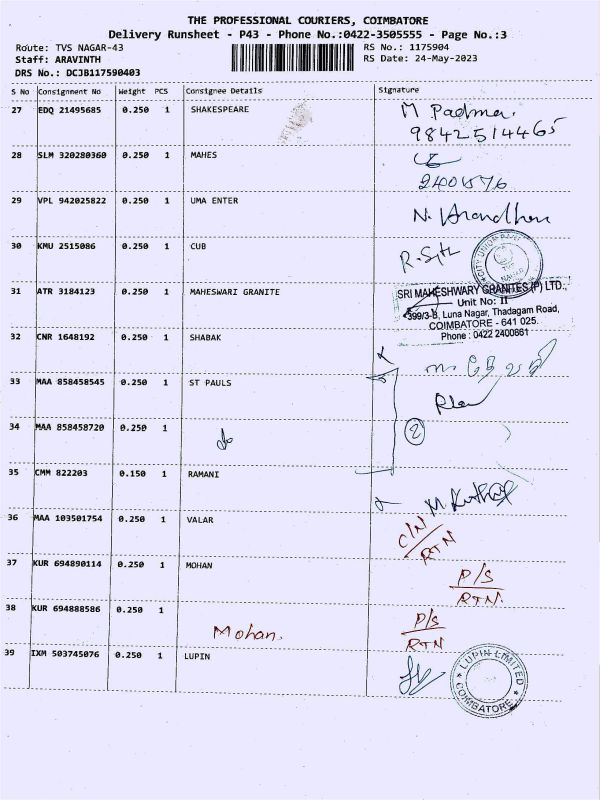 THE PROFESSIONAL COURIERS, COIMBATORE
Delivery Runsheet - P43 - Phone No.:0422-3505555 - Page No.:3
Route: TVS NAGAR-43 RS No.: 1175904
Staff: ARAVINTH RS Date: 24-May-2023
DRS No.: DCJB117590403
S No Consignment No Weight PCS Consignee Details Signature
27 EDQ 21495685 0.250 1 SHAKESPEARE M Padma
9842514465
28 SLM 320280360 0.250 1 MAHES
29 VPL 942025822 0.250 1 UMA ENTER
30 KMU 2515086 0.250 1 CUB
CITY UNION BANK
31 ATR 3184123 0.250 1 MAHESWARI GRANITE
SRI MAHESHWARY GRANITES (P) LTD.,
Unit No: II
399/3-B, Luna Nagar, Thadagam Road,
COIMBATORE - 641 025.
Phone : 0422 2400861
32 CNR 1648192 0.250 1 SHABAK
33 MAA 858458545 0.250 1 ST PAULS
34 MAA 858458720 0.250 1
do 2
35 CMM 822203 0.150 1 RAMANI
36 MAA 103501754 0.250 1 VALAR C/N
RTN
37 KUR 694890114 0.250 1 MOHAN P/S
RTN.
38 KUR 694888586 0.250 1 P/S
Mohan. RTN
39 IXM 503745076 0.250 1 LUPIN
LUPIN LIMITED
COIMBATORE